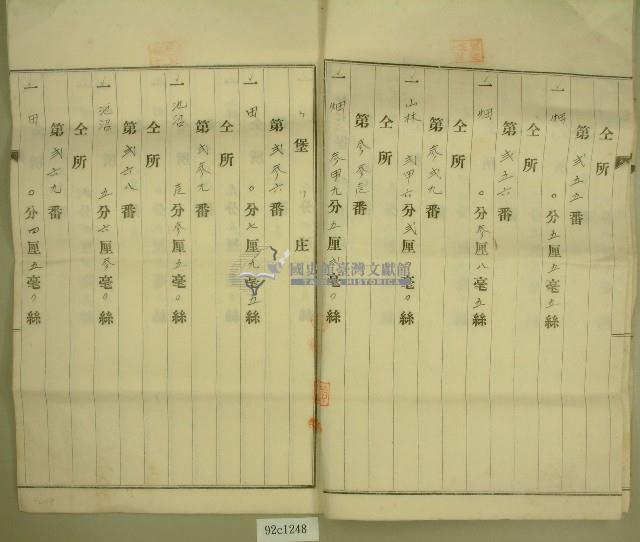 仝所
第貳五五番
一畑 〇分五厘五毫五絲
仝所
第貳五六番
一畑 〇分參厘八毫五絲
仝所
第參貳九番
一山林 甲六分貳厘
仝所
第參參壱番
一畑 參甲九分五厘貳毫〇絲
堡 庄
第貳參六番
一田 〇分七厘九毫五絲
仝所
第貳參九番
一池沼 壱分參厘五毫〇絲
仝所
第貳六八番
一池沼 五分六厘參毫〇絲
仝所
第貳六九番
一田 〇分四厘五毫〇絲
國史館臺灣文獻館
TAIWAN HISTORICA
92c1248